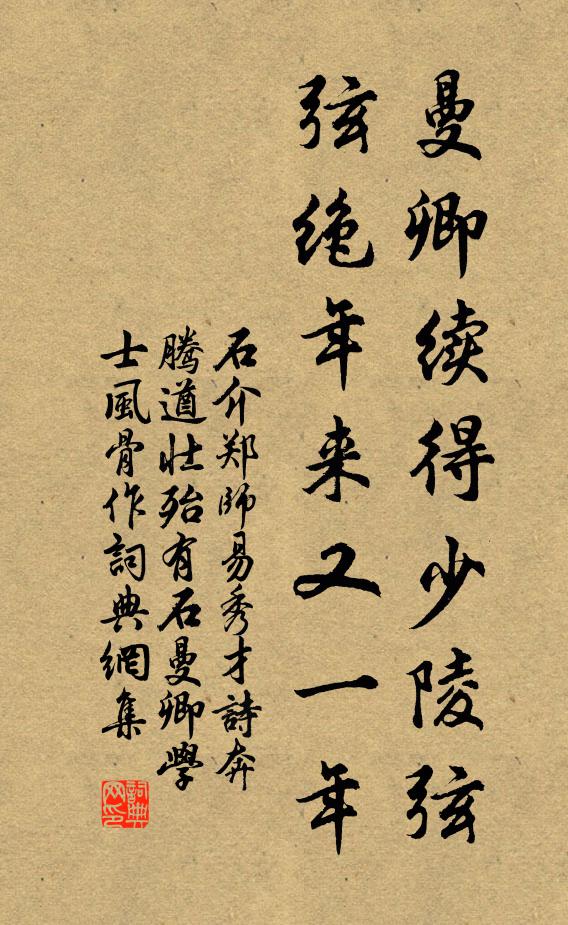 曼卿续得少陵弦
弦绝年来又一年
石介郑師易秀才詩奔
腾道壮殆有石曼卿學
士風骨作詞典網集
詞典网印